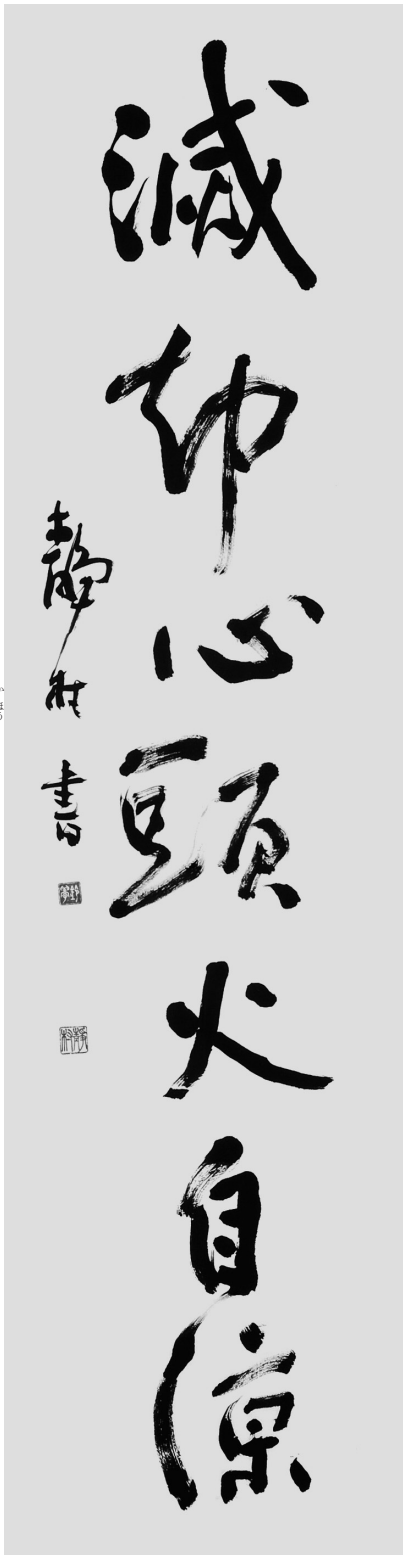 滅却心頭火自涼
靜書